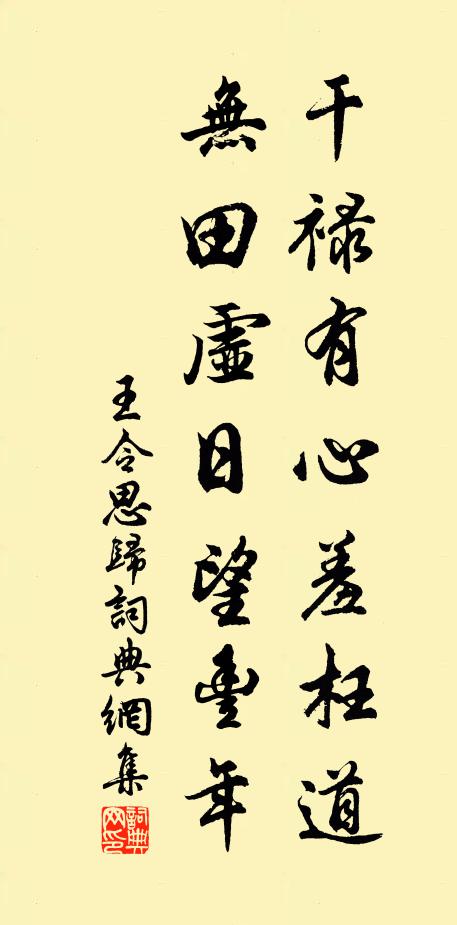 干禄有心羞枉道
無田虛日望豊年
王令思歸詞典網集
詞典网印